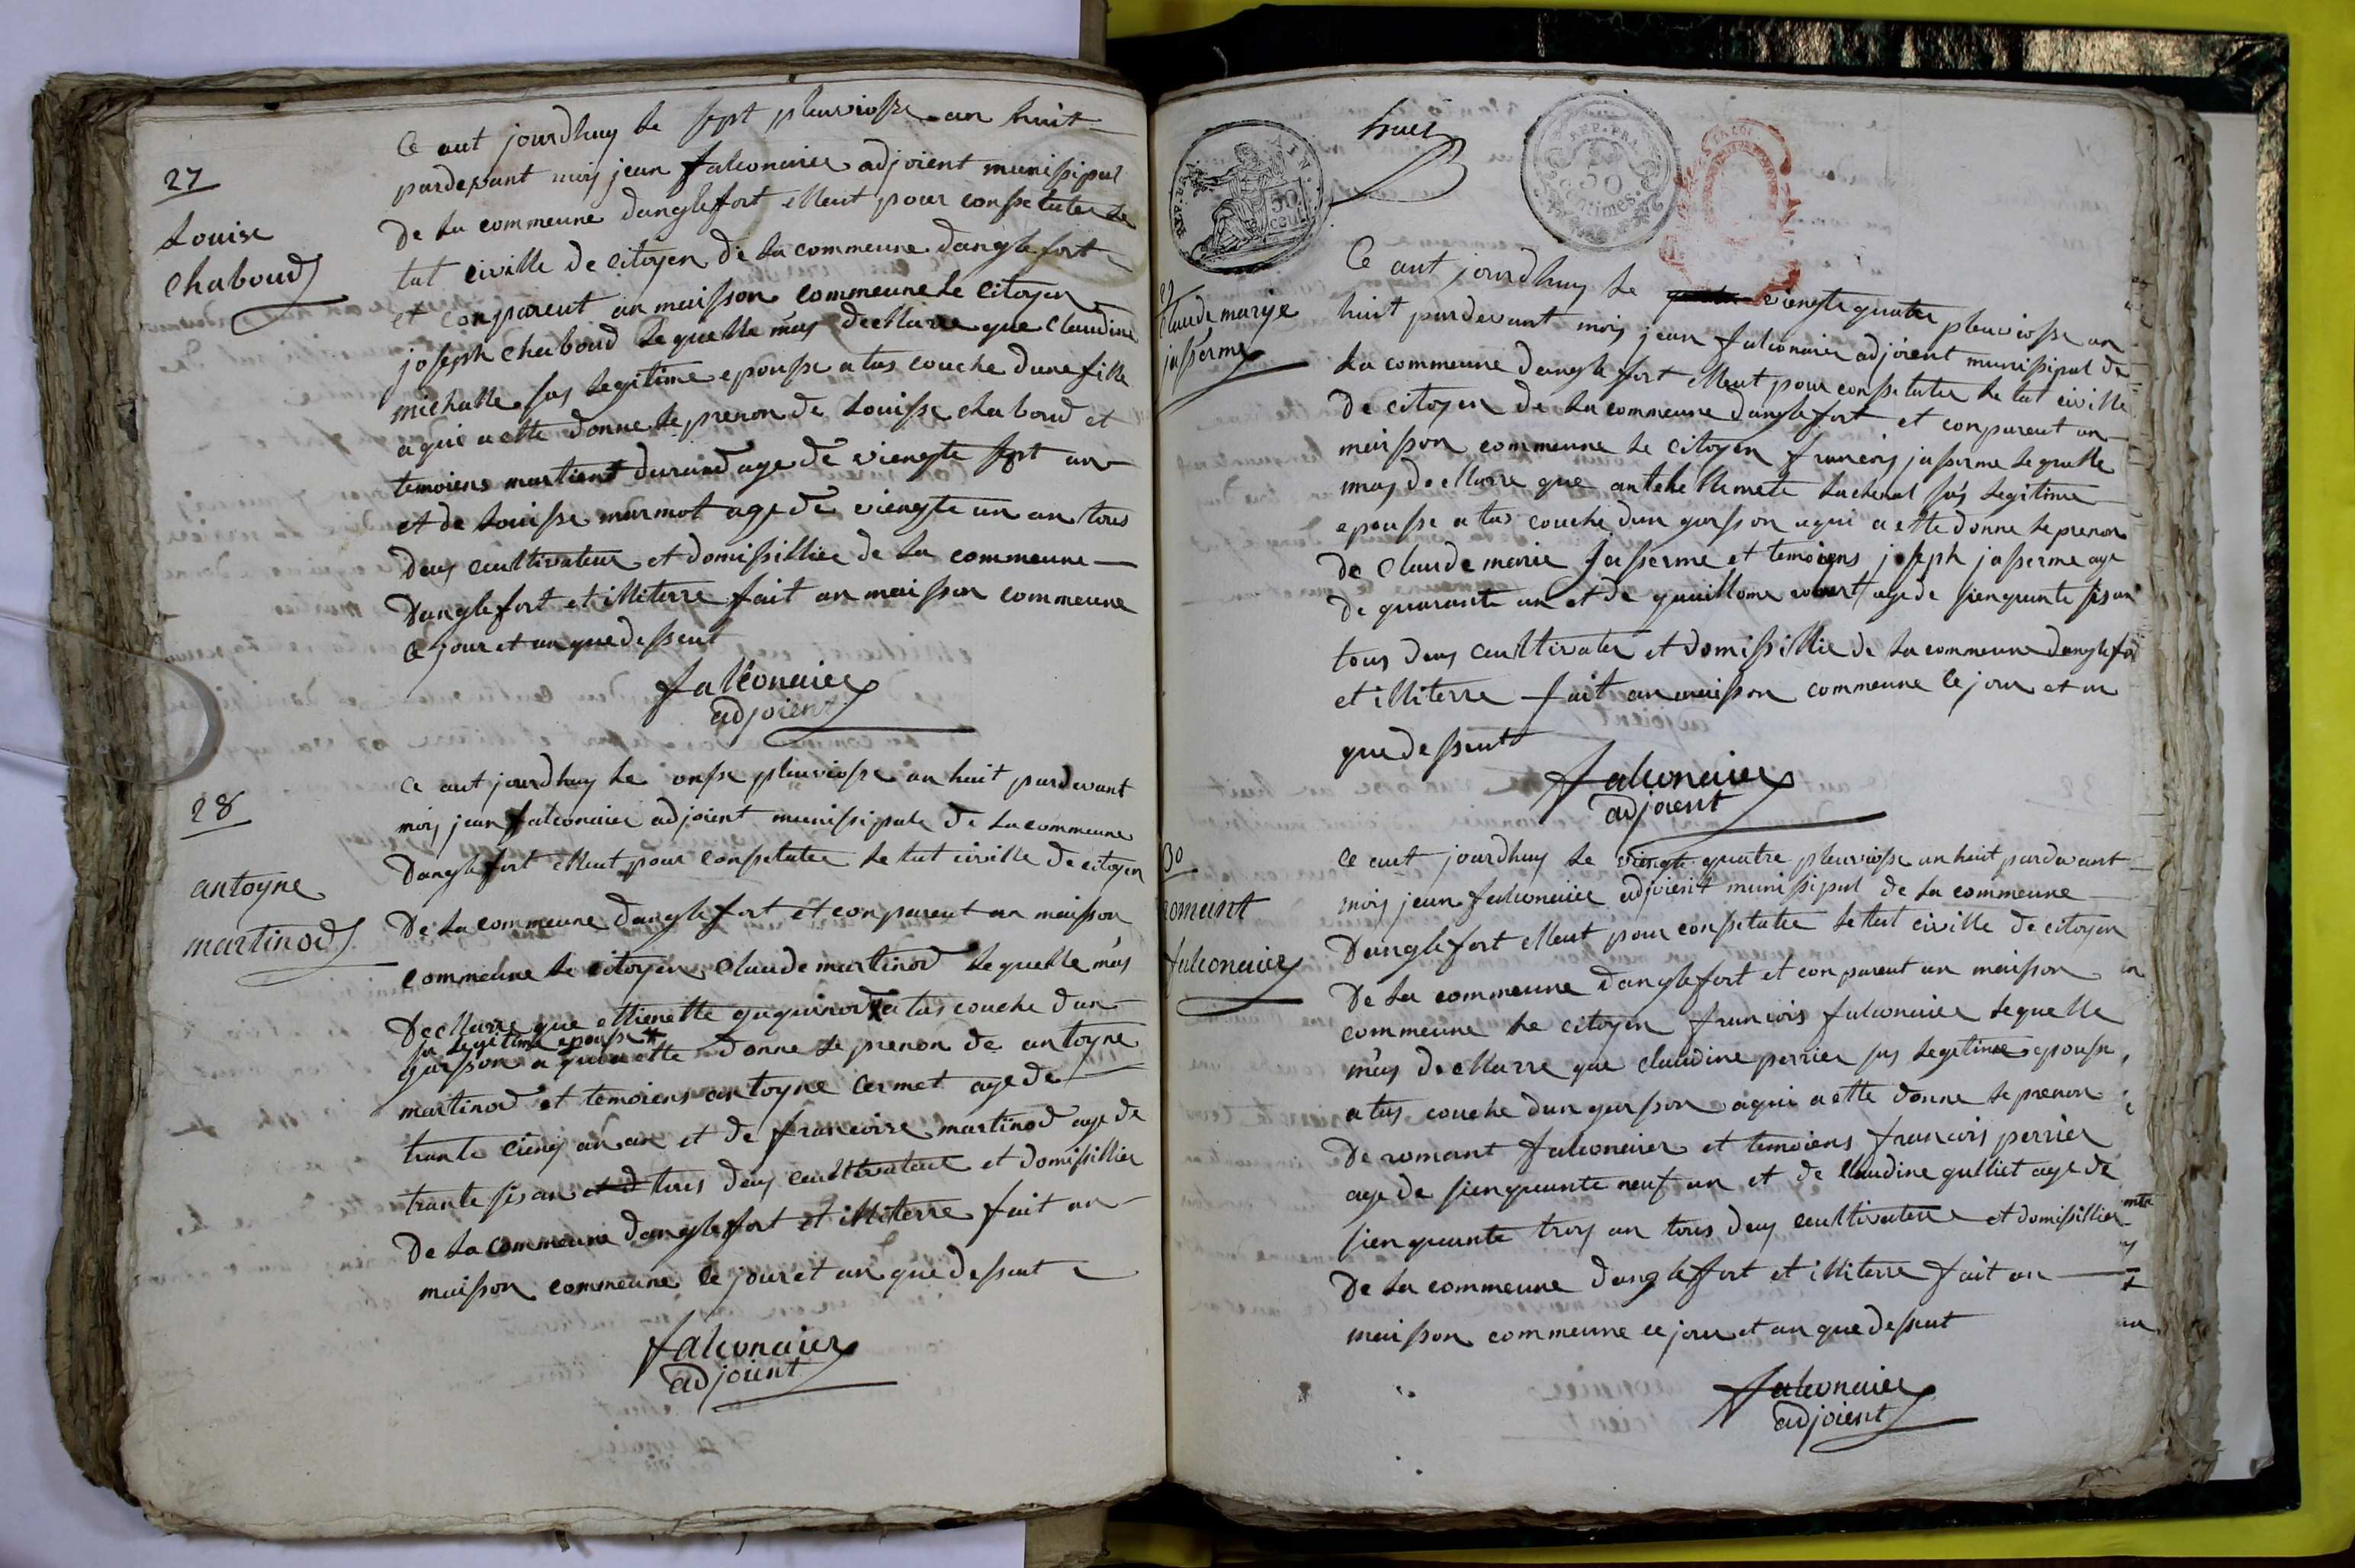 27
Louise
chaboud
Ce aut jourdhuy le sept pleuviosse an huit
pardevant moy jean falconnier adjoient munissipal
de la commeune danglefort elleut pour consetater le
tat civille de citoyen de la commeune danglefort
et conparent an maisson commeune le citoyen
joseph chaboud le quelle mas decllarre que claudine
michalle sas legitime epousse a tas couche dune fille
a qui a ette donne le prenon de Louisse chaboud et
temoiens martient durand age de viengte sept an
et de Louisse marmot age de viengte un an tous
deuy ceultivateur et domissillier de la commeune
danglefort et illiterre fait an maisson commeune
ce jour et an que dessent
falconaier
adjoient
28
antoyne
martinod
Ce aut jourdhuy le onsse pleuviosse an huit pardevant
moy jean falconaier adjoient munissipale de la commeune
danglefort elleut pour consetater le tat civille de citoyen
de la commeune danglefort et conparent an maisson
commeune le citoyen claude martinod le quelle mas
decllarre que ettienette guguinod a tas couche dun
sa legitime epousse
garsson a qui a ette donne le prenon de antoyne
martinod et temoiens antoyne cermet age de
trante cienq an an et de francoise martinod age de
trante sis an et d tous deuy ceultivateur et domissillier
de la commeune danglefort et illiterre fait an
maisson commeune ce jour et an que dessent
falconaier
adjoient
huit
REP. FRA.
50
centimes
50
cent
claude marije
jasserme
Ce aut jourdhuy le viengte quatre pleuviosse an
huit pardevant moy jean falconaier adjoient munissipal de
la commeune danglefort elleut pour consetater le tat civille
de citoyen de la commeune danglefort et conparent an
maisson commeune le citoyen francois jasserme le quelle
mas decllarre que antehellemete Lachenal sas legitime
epousse a tas couche dun garsson a qui a ette donne le prenon
de claude marie jasserme et temoiens joseph jasserme age
de quarante an et de guaillome age de sienquante sis an
tous deuy ceultivater et domissillie de la commeune danglefor
et illiterre fait an maisson commeune ce jour et an
que dessent
falconaier
adjoient
30
romant
falconaier
Ce aut jourdhuy le viengte quatre pleuviosse an huit pardevant
moy jean falconaier adjoient munissipal de la commeune
danglefort elleut pour consetater le tat civille de citoyen
de la commeune danglefort et conparent an maisson
commeune le citoyen francois falconaier le quelle
mas decllarre que claudine perrier sas legetime epousse
a tas couche dun garsson a qui a ette donne le prenon
de romant falconaier et temoiens francois perrier
age de sienquante neuf an et de claudine gulliet age de
sienquante troy an tous deuy ceultivateur et domissillier
de la commeune danglefort et illiterre fait an
maisson commeune ce jour et an que dessent
falconaier
adjoient